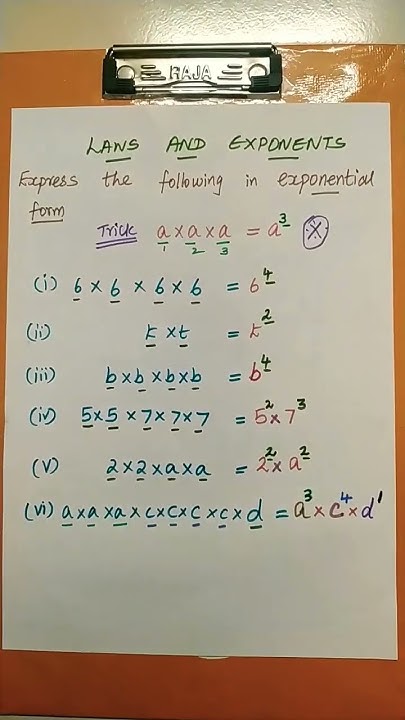 RAJA
LAWS AND EXPONENTS
Express the following in exponential
form
Trick a × a × a = a³ (×)
1 2 3
(i) 6 × 6 × 6 × 6 = 6⁴
(ii) t × t = t²
(iii) b × b × b × b = b⁴
(iv) 5 × 5 × 7 × 7 × 7 = 5² × 7³
(v) 2 × 2 × a × a = 2² × a²
(vi) a × a × a × c × c × c × c × d = a³ × c⁴ × d¹